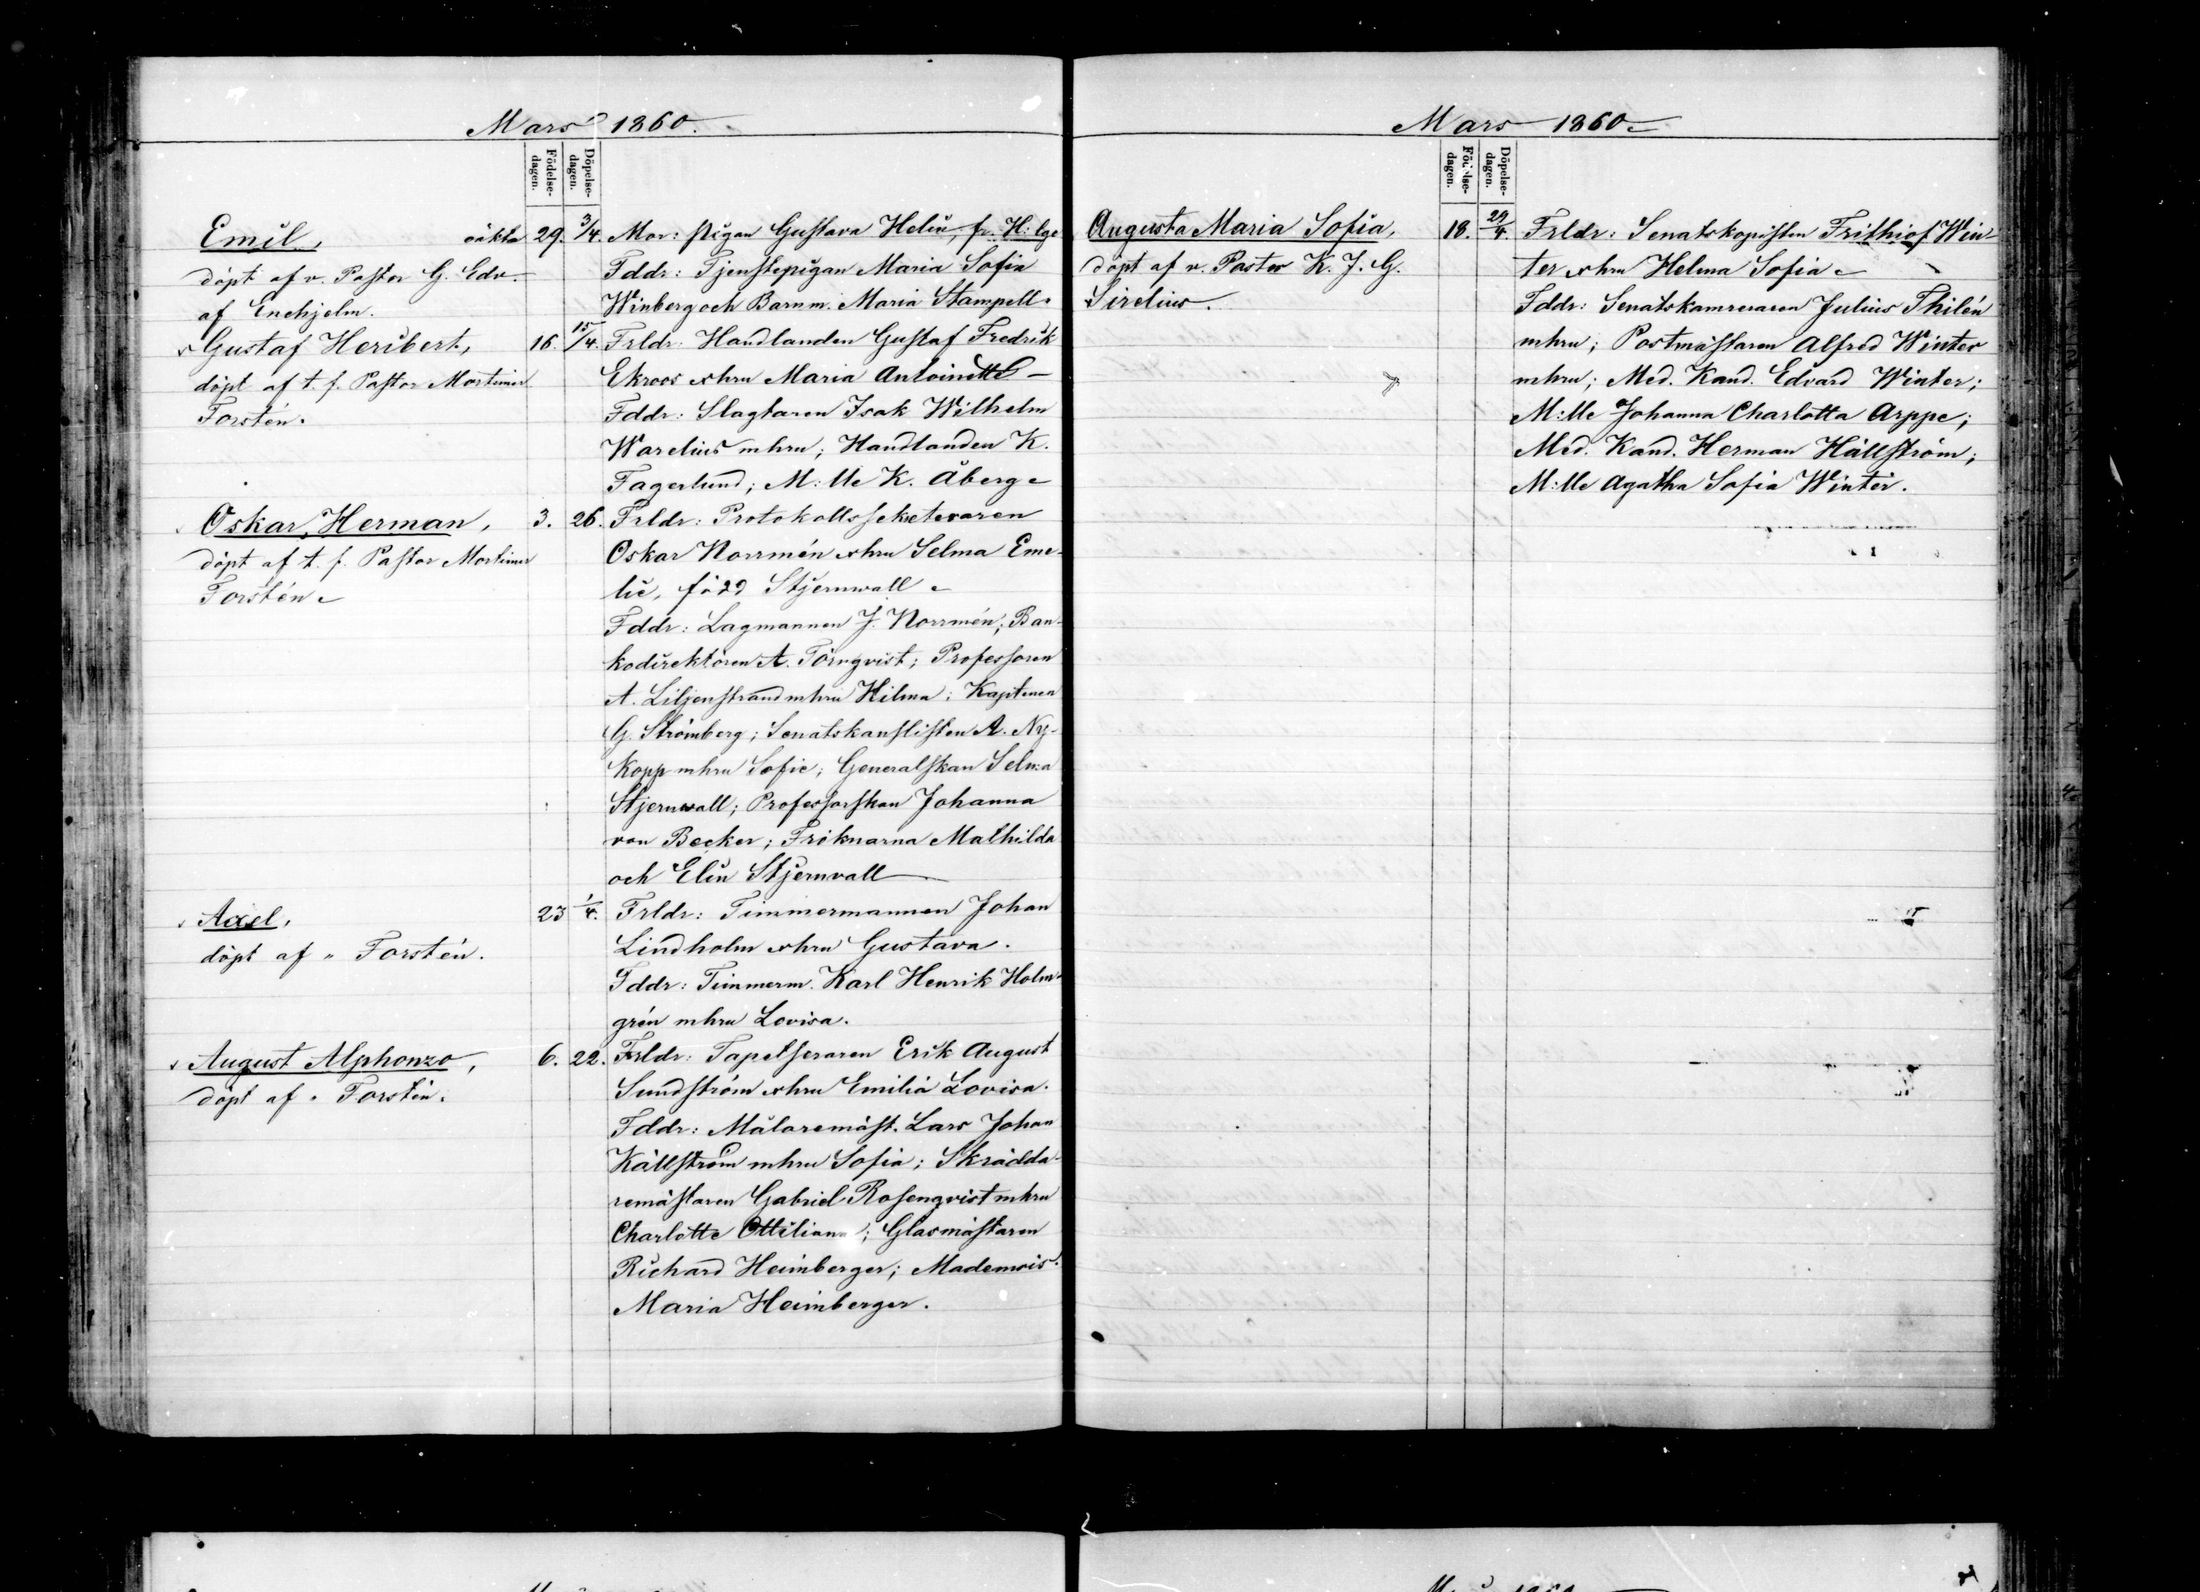 Mars 1860.
Födelse-
dagen.
Döpelse-
dagen.
Emil, oäkta 29. 3/4. Mor: pigan Gustava Helin, fr. H:lge
döpt af v. Pastor G. Edv. Fddr: Tjenstepigan Maria Sofia
af Enehjelm. Winberg och Barnm. Maria Stampell.
Gustaf Heribert, 16. 15/4. Frldr: Handlanden Gustaf Fredrik
döpt af t. f. Pastor Mortimer Ekroos o hru Maria Antoinette
Forstén. Fddr: Slagtaren Isak Wilhelm
Warelius mhru; Handlanden K.
Fagerlund; M:lle K. Åberg
Oskar Herman, 3. 26. Frldr: Protokollssekreteraren
döpt af t. f. Pastor Mortimer Oskar Norrmén o hru Selma Eme-
Forstén lie, född Stjernwall
Fddr: Lagmannen J. Norrmén; Ban-
kodirektören A. Törnqvist; Professoren
A. Liljenstrand mhru Hilma; Kaptenen
G. Strömberg; Senatskanslisten A. Ny-
kopp mhru Sofie; Generalskan Selma
Stjernwall; Professorskan Johanna
von Becker; Fröknarna Mathilda
och Elin Stjernvall
Axel, 23 1/4. Frldr: Timmermannen Johan
döpt af " Forstén. Lindholm o hru Gustava.
Fddr: Timmerm. Karl Henrik Holm-
grén mhru Lovisa.
August Alphonzo, 6. 22. Frldr: Tapetseraren Erik August
döpt af " Forstén. Sundström o hru Emilia Lovisa.
Fddr: Målaremäst. Lars Johan
Källström mhru Sofia; Skrädda-
remästaren Gabriel Rosenqvist mhru
Charlotte Ottiliana; Glasmästaren
Richard Heimberger; Mademois.
Maria Heimberger.
Mars 1860
dagen.
Döpelse-
dagen.
Augusta Maria Sofia, 18. 29/4. Frldr: Senatskopisten Frithiof Win-
döpt af v. Pastor K. J. G. ter o hru Helma Sofia
Sirelius. Fddr: Senatskamreraren Julius Thilén
mhru; Postmästaren Alfred Winter
mhru; Med. Kand. Edvard Winter;
M:lle Johanna Charlotta Arppe;
Med. Kand. Herman Hällström;
M:lle Agatha Sofia Winter.